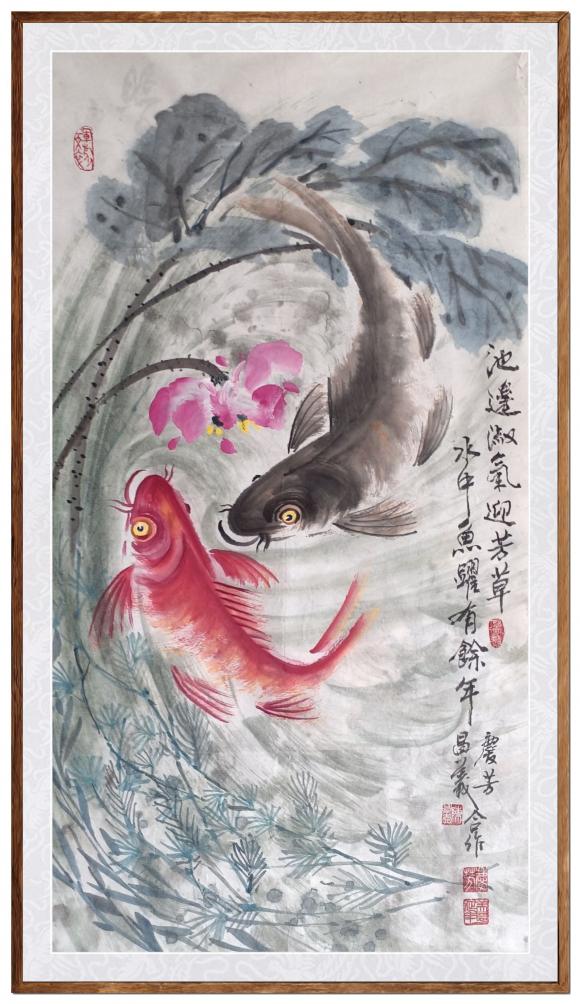 池邊淑氣迎芳草
水中魚躍有餘年
慶芳
昌義
合作